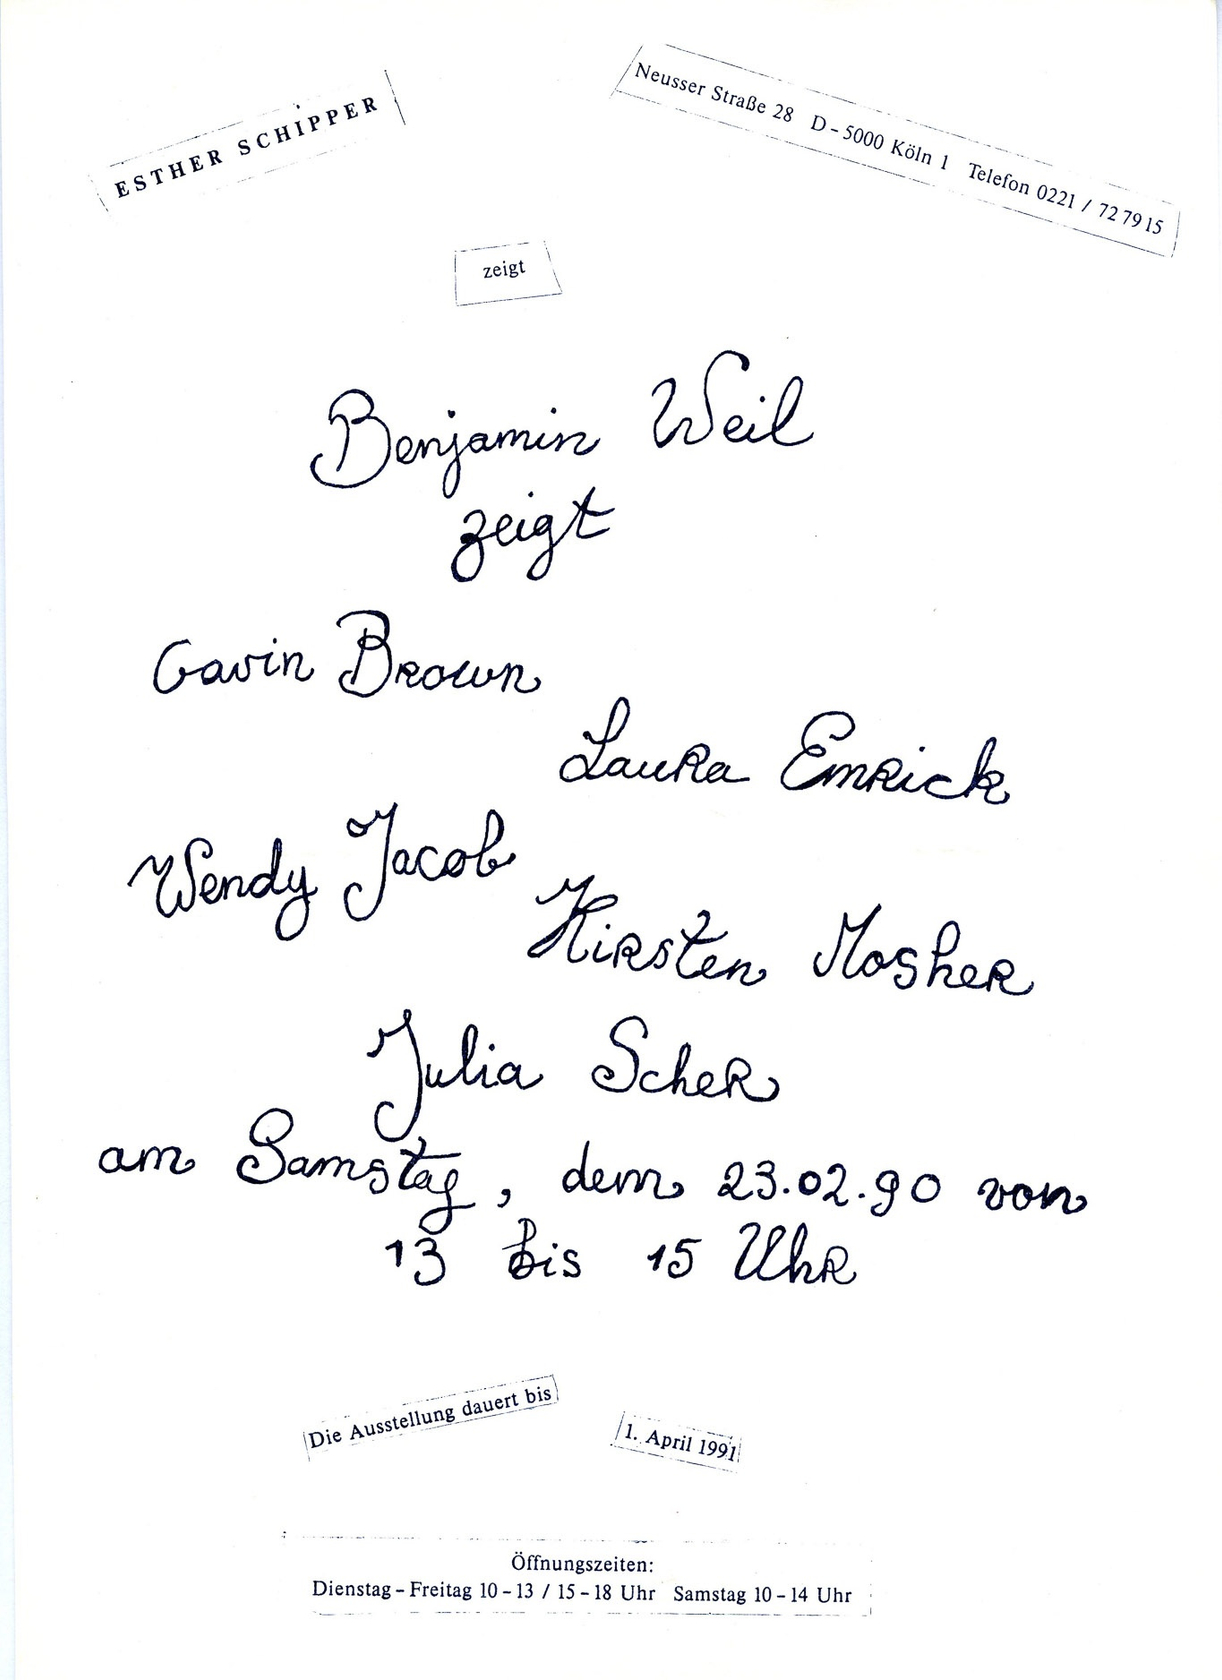 ESTHER SCHIPPER
Neusser Straße 28 D-5000 Köln 1 Telefon 0221 / 72 79 15
zeigt
Benjamin Weil
zeigt
Gavin Brown
Laura Emrick
Wendy Jacob
Kirsten Mosher
Julia Scher
am Samstag, dem 23.02.90 von
13 bis 15 Uhr
Die Ausstellung dauert bis 1. April 1991
Öffnungszeiten:
Dienstag – Freitag 10 – 13 / 15 – 18 Uhr Samstag 10 – 14 Uhr